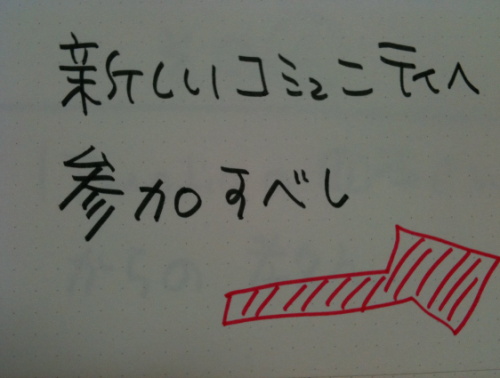 新しいコミュニティへ
参加すべし